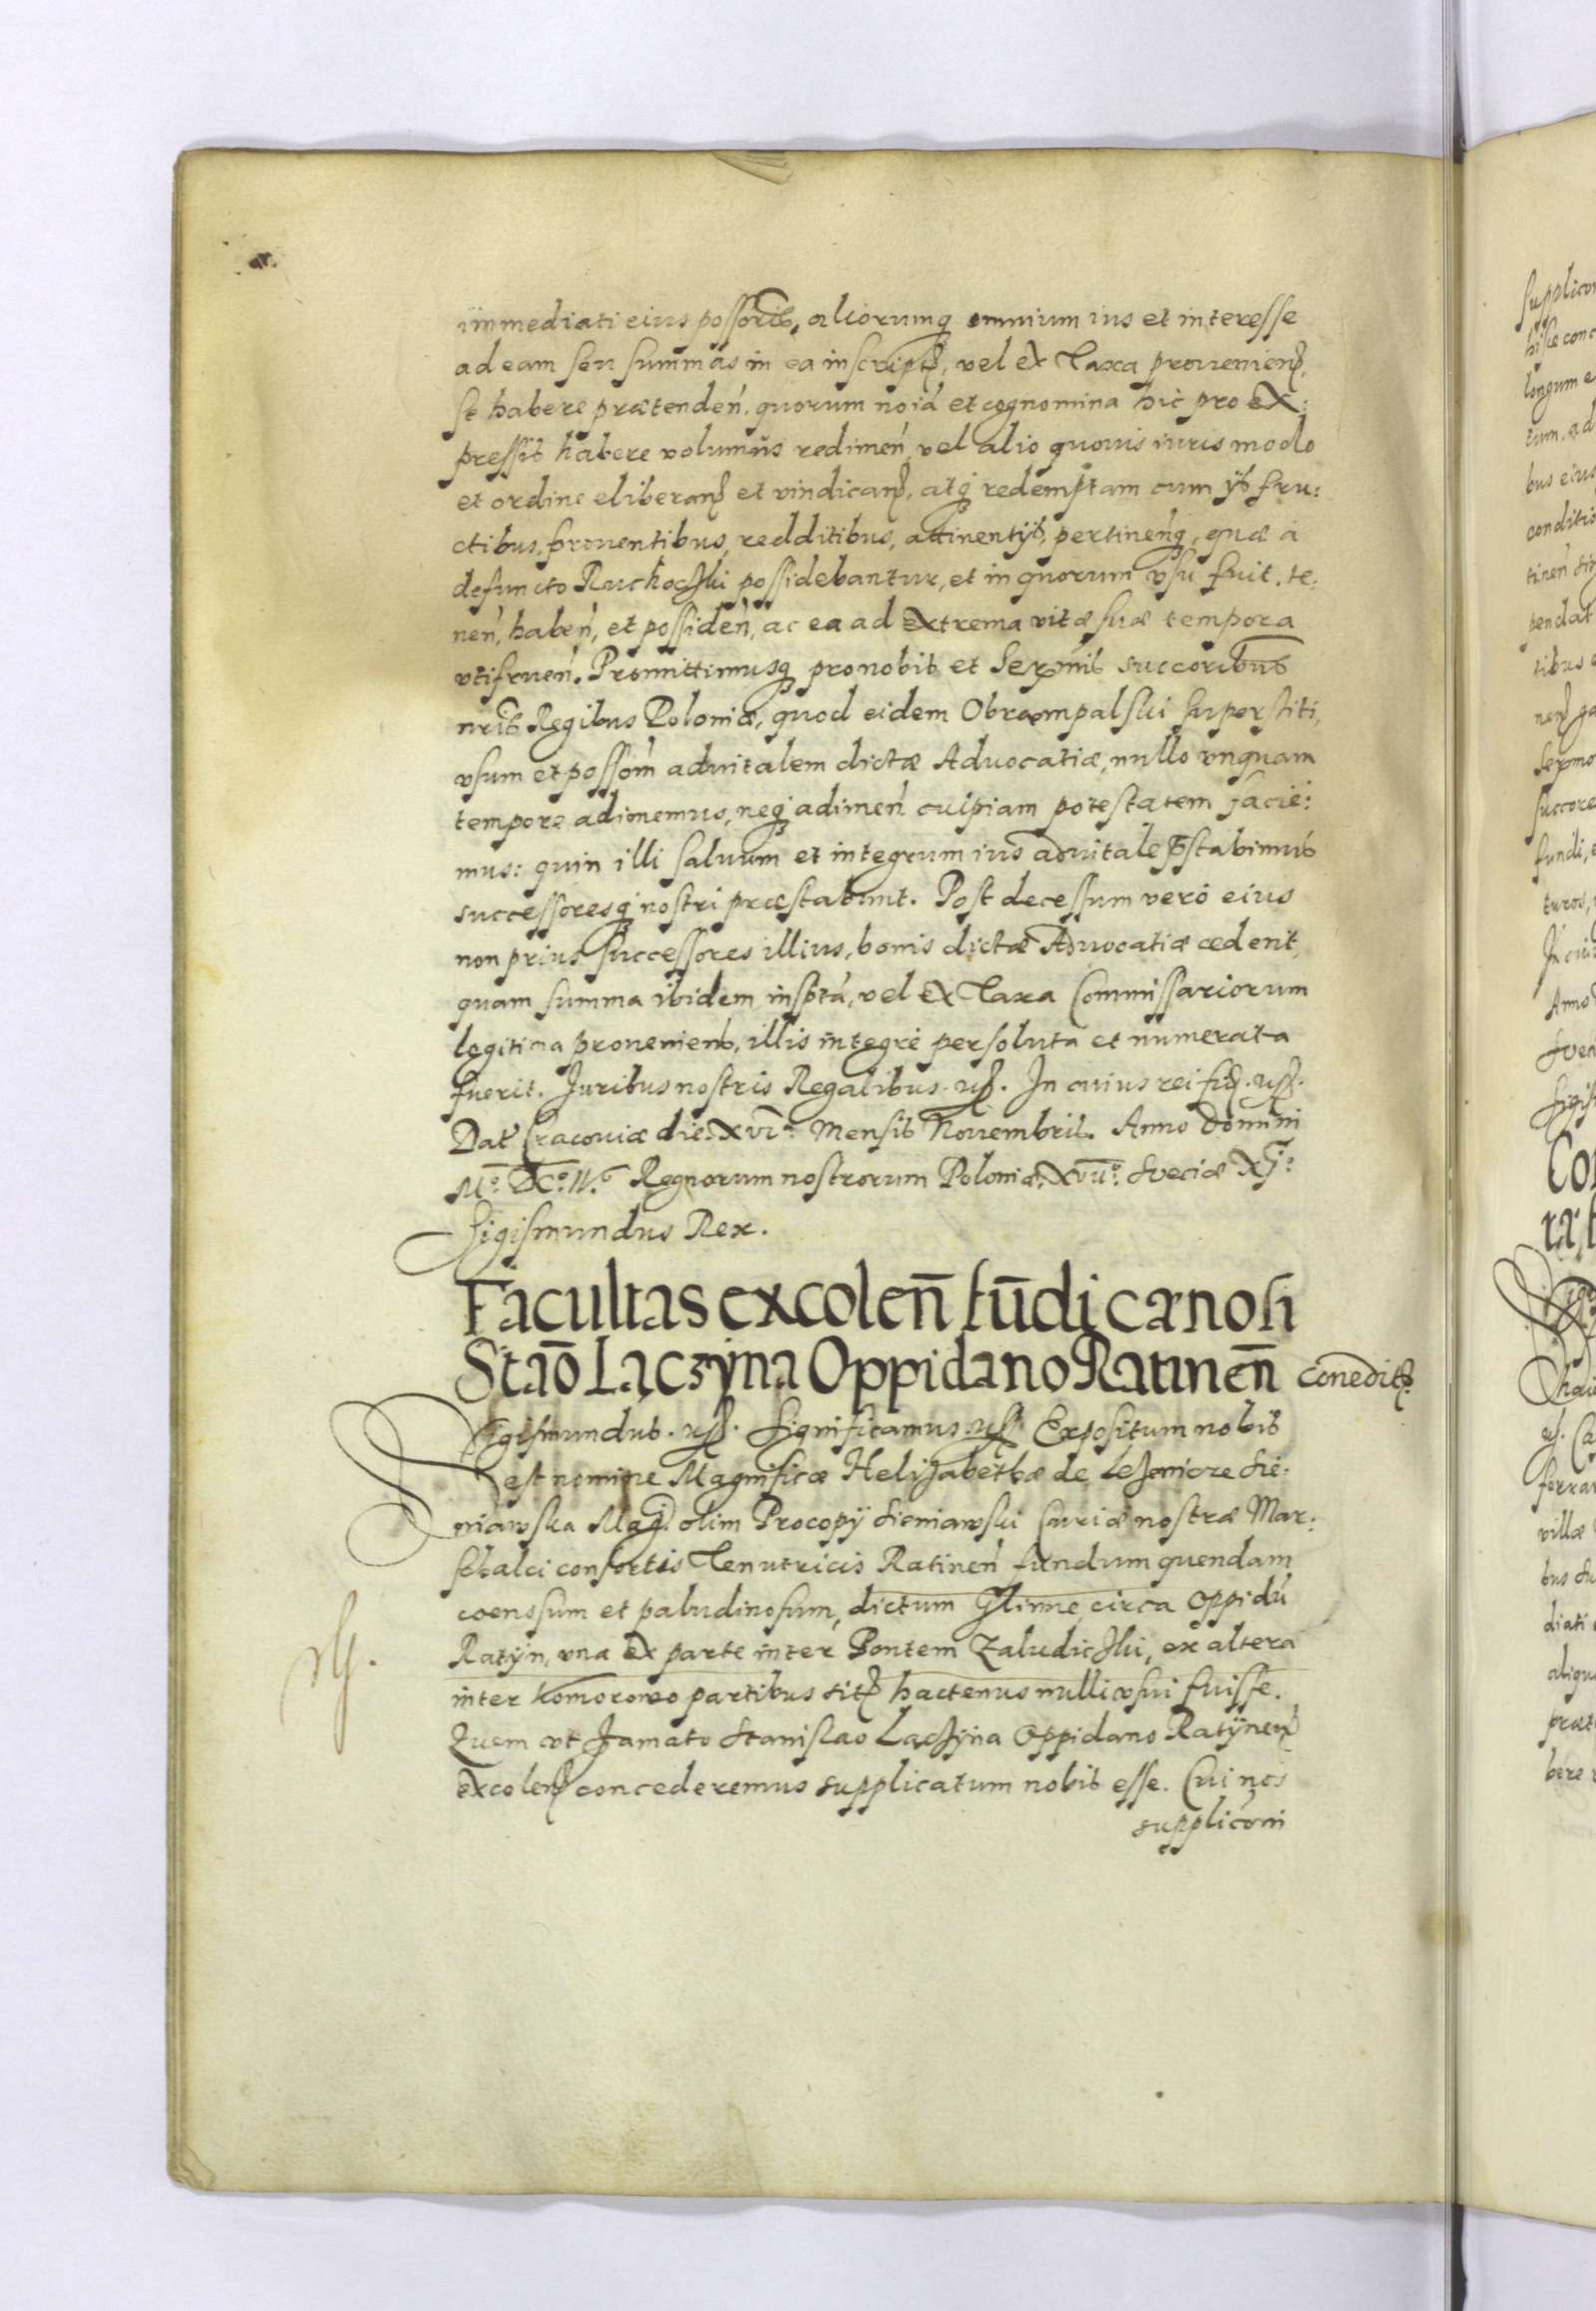 immediati eius possoris, aliorumq omnium ius et interesse
ad eam seu summas in ea inscript, vel ex Taxa prouenien,
se habere prætenden, quorum noia et cognomina hic pro ex:
pressis habere volumus redimen, vel alio quouis iuris modo
et ordine eliberan et vindican, atq redemptam cum ys fru:
ctibus, prouentibus, redditibus, attinentys, pertinenq, quæ a
defuncto Ruchocski possidebantur, et in quorum vsu fuit, te:
nen, haben, et possiden, ac ea ad extrema vitæ suæ tempora
vtifruen. Promittimusq pro nobis et Sermis succoribus
nris Regibus Poloniæ, quod eidem Obrompalski superstiti,
vsum et possom aduitalem dictæ Aduocatiæ, nullo vnquam
tempore adimemus, neq adimen cuipiam potestatem facie:
mus: quin illi saluum et integrum ius aduitale pstabimus
successoresq nostri præstabunt. Post decessum vero eius
non prius successores illius, bonis dictæ Aduocatiæ cedent,
quam summa ibidem inspta, vel ex Taxa Commissariorum
legitima proueniens, illis integre persoluta et numerata
fuerit. Juribus nostris Regalibus. In cuius rei fid.
Dat Cracouiæ die XVI Mensis Nouembris. Anno Domini
Regnorum nostrorum Poloniæ XVII Sveciæ XI
Sigismundus Rex.
Facultas excolen fundi cænosi
Stao Laczyna Oppidano Ratinen coneditr
Sigismundus. Significamus. Expositum nobis
est nomine Magnificæ Helisabethæ de Sie:
niawska Mag. olim Procopy Sieniawski Curiæ nostræ Mar:
schalci consortis Tenutricis Ratinen fundum quendam
coenosum et paludinosum, dictum Glinne, circa Oppidu
Ratyn, vna ex parte inter Pontem Zaludicski, ex altera
inter Komorowo partibus sit hactenus nulli vsui fuisse.
Quem vt famato Stanislao Lacsyna Oppidano Ratynen
excolen concederemus supplicatum nobis esse. Cui nos
suppliconi